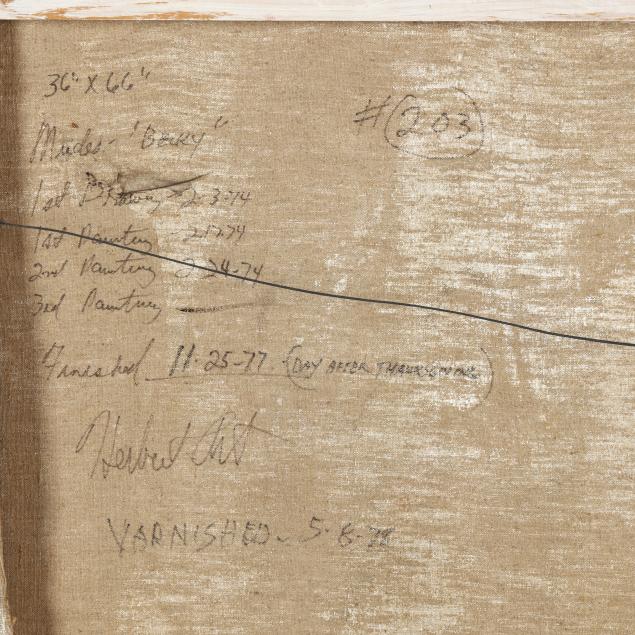 36" X 66"
# 203
"Becky"
1st Drawing - 2-3-74
1st Painting -
2nd Painting 2-24-74
3rd Painting
Finished 11-25-77 (DAY AFTER THANKSGIVING)
Herbert
VARNISHED - 5-8-78